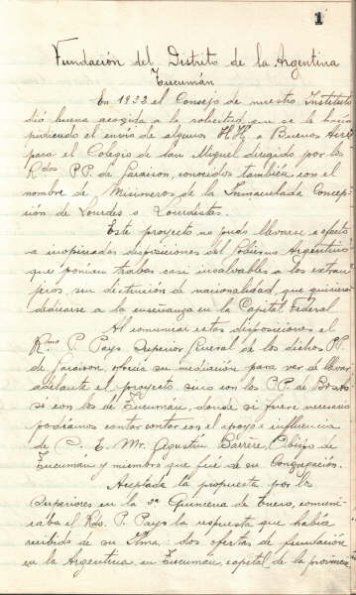 1
Fundación del Distrito de la Argentina
Tucumán
En 1932 el Consejo de nuestro Instituto
dió buena acogida a la solicitud que se le hacía
pidiendo el envío de algunos HH. a Buenos Aires
para el Colegio de San Miguel dirigido por los
Rdos PP. de Garaison, conocidos también con el
nombre de Misioneros de la Inmaculada Concep
ción de Lourdes o Lourdistas.
Este proyecto no pudo llevarse a efecto
a inopinadas disposiciones del Gobierno Argentino
que ponían trabas casi insalvables a los extran
jeros, sin distinción de nacionalidad, que quisieran
dedicarse a la enseñanza en la Capital Federal
Al comunicar estas disposiciones el
Rdmo P. Pays Superior General de los dichos PP.
de Garaison, ofrecía su mediación para ver de llevar
adelante el proyecto sino con los PP. de
sí con los de Tucumán, donde si fuere necesario
podríamos contar contar con el apoyo e influencia
de S. E. Mr. Agustín Barrère, Obispo de
Tucuman y miembro que fué de su Congregación.
Aceptada la propuesta por los
Superiores en la 2ª Quincena de Enero, comuni
caba el Rdo. P. Pays la respuesta que había
recibido de su Ilma: dos ofertas de fundación
en la Argentina, en Tucuman, capital de la provincia